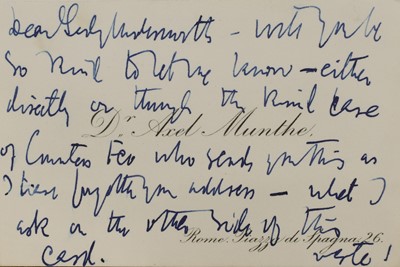 Dear Lady Underworth - will you be
so kind to let me know - either
directly or through the kind care
Dr. Axel Munthe.
of Countess Feo who sends you this as
I have forgotten your address - what I
ask on the other side of this
Rome. Piazza di Spagna, 26.
card.